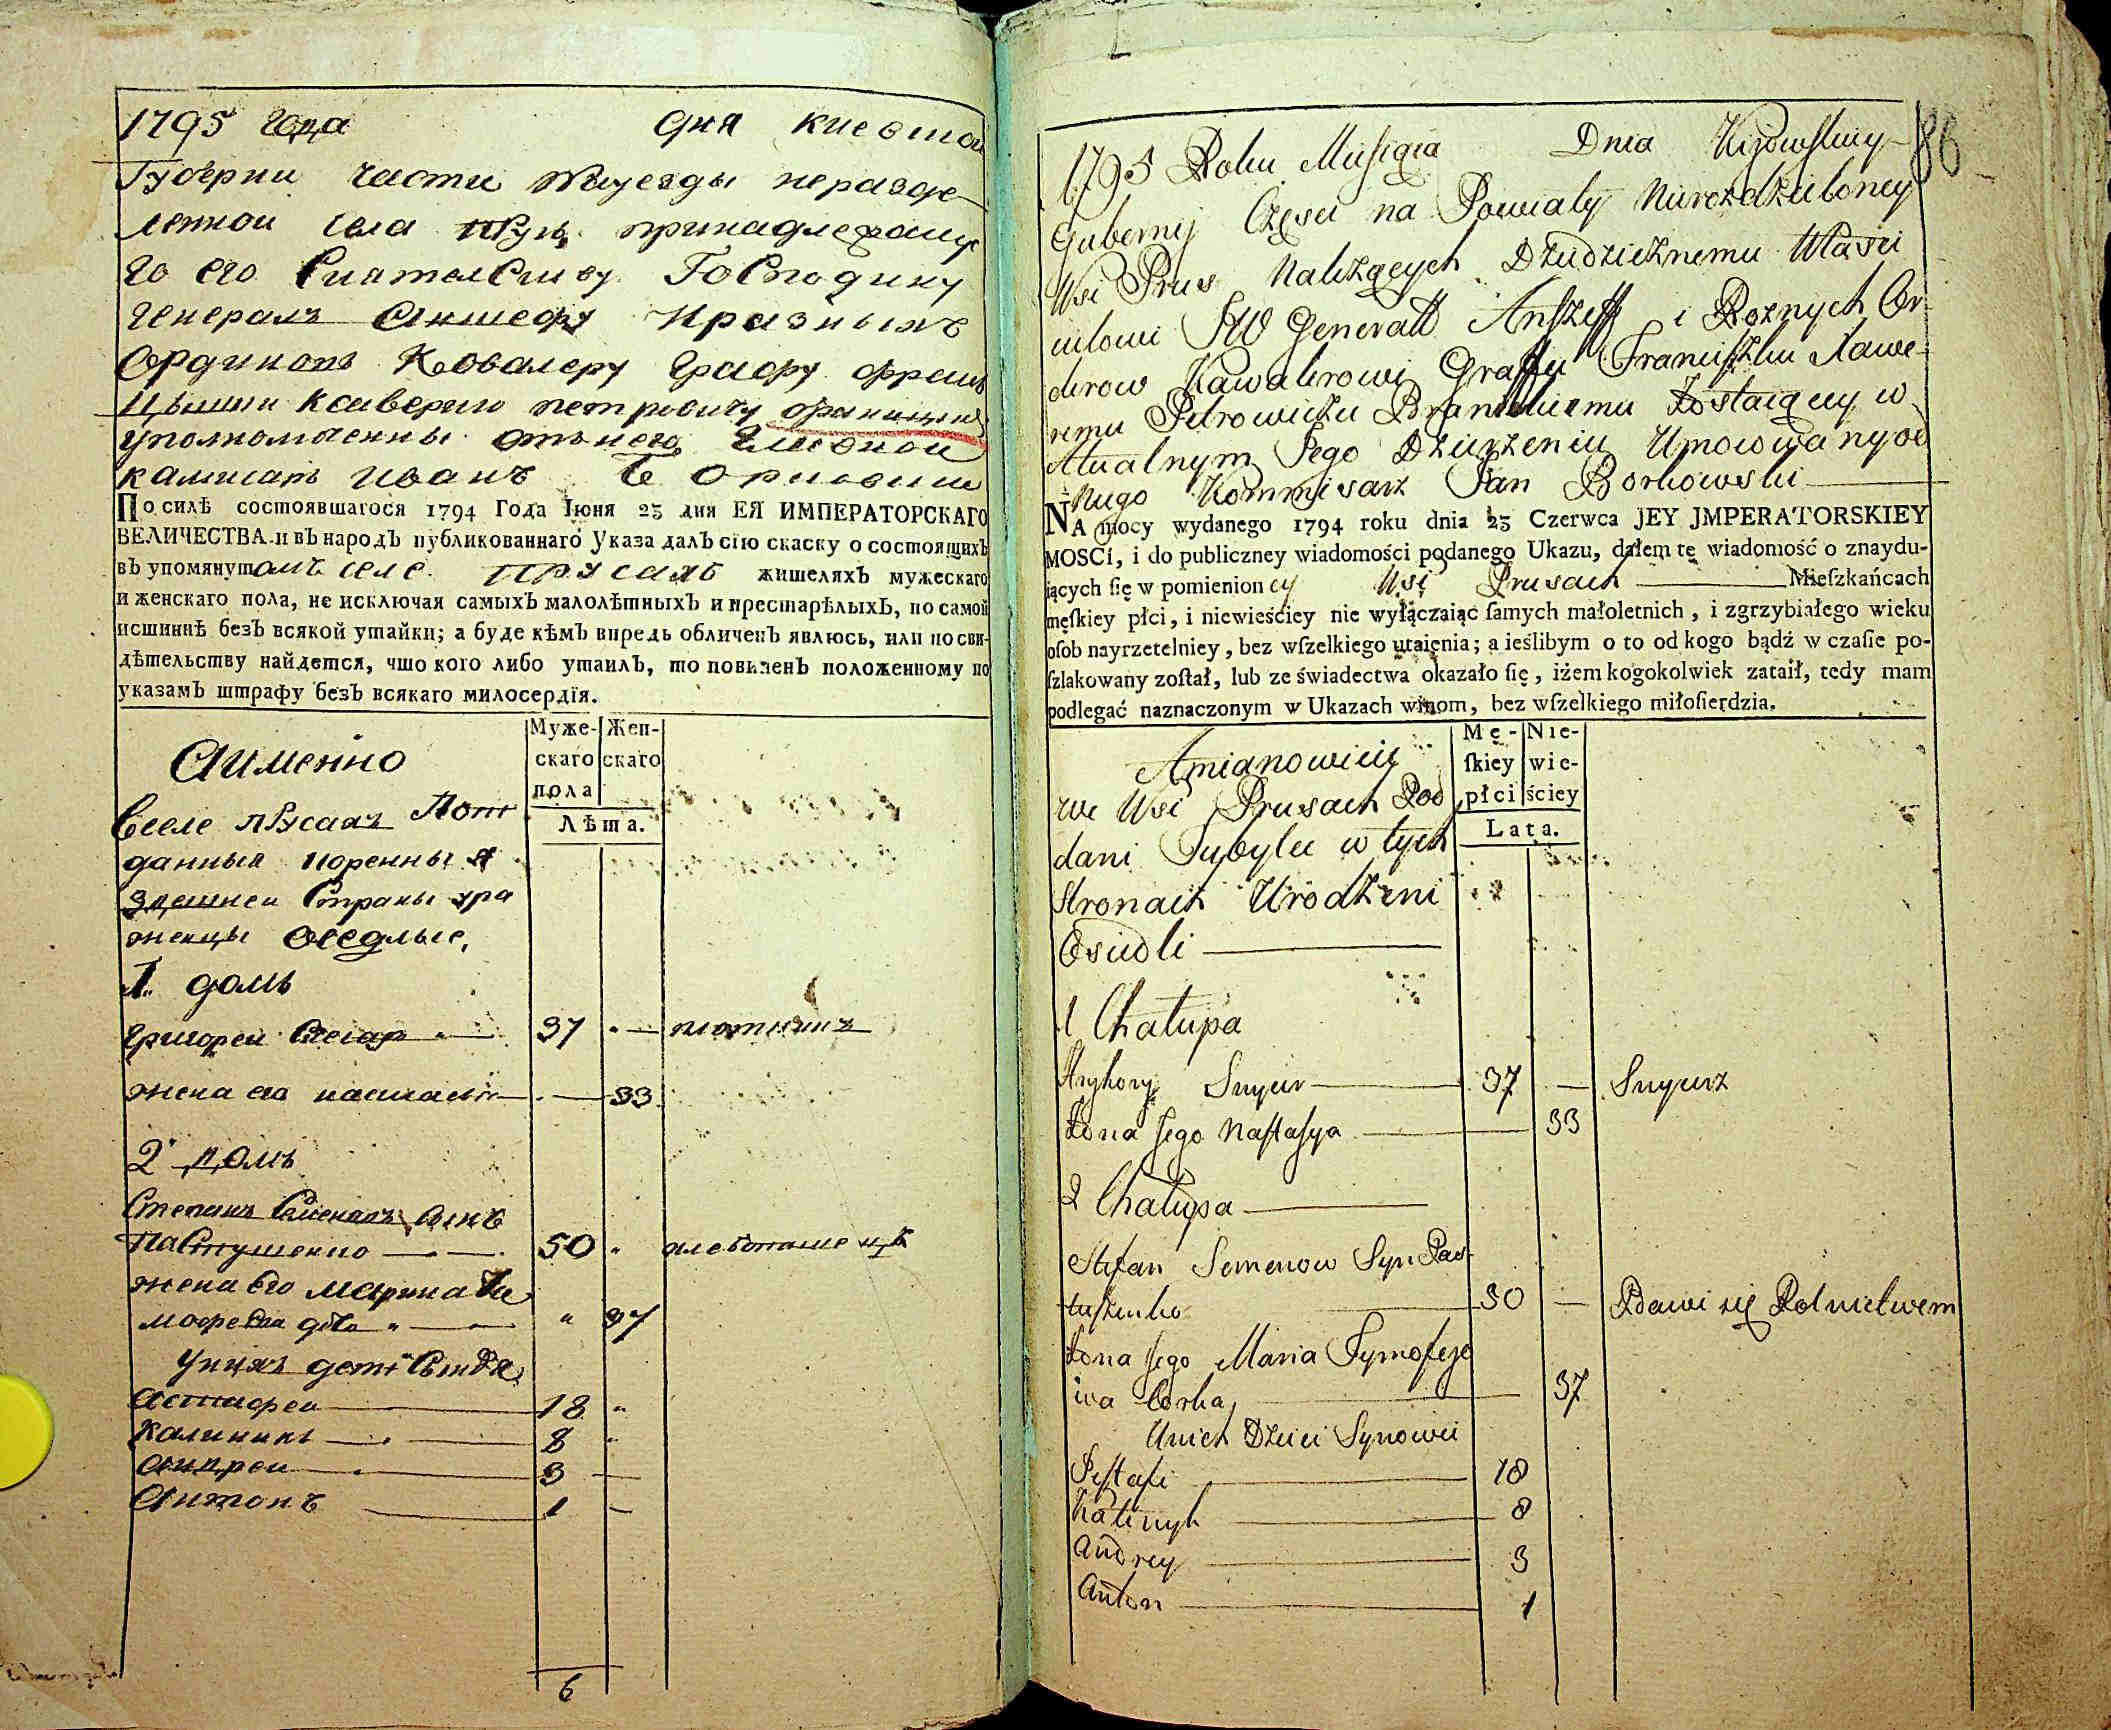 1795 года дня киевской
Губернии части науезды неразде
ленной села Прус принадлежаще
го его Сиятелству Господину
Генералъ Аншефу и разныхъ
Ординовъ Ковалеру Графу Фран
цышку Ксаверию петровичу браницкому
уполномоченны отънего Главной
камисаръ Иванъ
ПО силѣ состоявшагося 1794 Года Іюня 23 дня ЕЯ ИМПЕРАТОРСКАГО
ВЕЛИЧЕСТВА и въ народъ публикованнаго Указа далъ сію скаску о состоящихъ
въ упомянутомъ селе Прусахъ жишеляхъ мужескаго
и женскаго пола, не исключая самыхъ малолѣтныхъ и престарѣлыхъ, по самой
истиннѣ безъ всякой утайки; а буде кѣмъ впредь обличенъ явлюсь, или по сви-
дѣтельству найдется, что кого либо утаилъ, то повиненъ положенному по
указамъ штрафу безъ всякаго милосердія.
Муже-скаго пола Жен-скаго
Лѣта.
Аименно
Вселе прусахъ Пот
данныя коренныя
здешней Страны ура
женцы оседлые,
1. домъ
Григорей Снегар 37
жена его настася 33
2 домъ
Степанъ Семеновъ Сынъ
Пастушенко 50
жена его Марина Ти
мофеева доч 37
Унихъ дети Сынове
18
Калиникъ 8
Андреи 3
Антонъ 1
6
86
1795 Roku Miesiąca Dnia Kijowskiey
Gubernij Częsci na Powiaty Nierozdzieloney
Wsi Prus Nalezących Dziedzicznemu Własci
cielowi JW Generałł Anszeff i Roznych Or-
derow Kawalerowi Graffu Franciszku Xawe-
remu Petrowiczu Branickiemu Zostaiący w
Atualnym Jego Dzierżeniu Umocowany od
Niego Kommisarz Jan Borkowski
NA mocy wydanego 1794 roku dnia 23 Czerwca JEY JMPERATORSKIEY
MOSCi, i do publiczney wiadomości podanego Ukazu, dałem tę wiadomość o znaydu-
iących ſię w pomienioncy Wsi Prusach Mieſzkańcach
męſkiey płci, i niewieściey nie wyłączaiąc ſamych małoletnich, i zgrzybiałego wieku
oſob nayrzetelniey, bez wſzelkiego utaienia; a ieślibym o to od kogo bądź w czaſie po-
ſzlakowany zoſtał, lub ze świadectwa okazało ſię, iżem kogokolwiek zataił, tedy mam
podlegać naznaczonym w Ukazach winom, bez wſzelkiego miłoſierdzia.
Mę-ſkiey płci Nie-wie-ściey
Lata.
Amianowicie
we Wsi Prusach Pod
dani Tubylcy w tych
Stronach Urodzeni
Osiedli
1 Chałupa
Hryhory Snycer 37 Snycerz
Zona Jego Nastasya 33
2 Chałupa
Stefan Semenow Syn Pas-
tuszenko 50 Bawi się Rolnictwem
Zona Jego Maria Tymofeje
wa Corka 37
Unich Dzieci Synowie
18
Kalenyk 8
Andrey 3
Anton 1